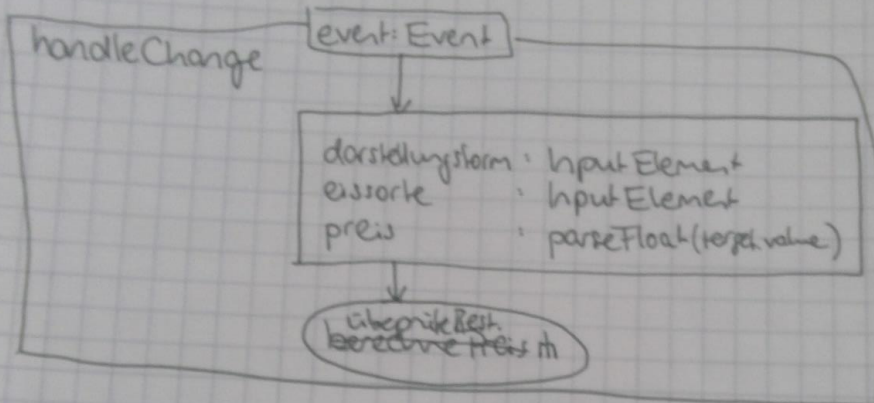 event: Event
handleChange
darstellungsform : InputElement
eissorte : InputElement
preis : parseFloat(target.value)
überprüfeBest.
berechne Preis